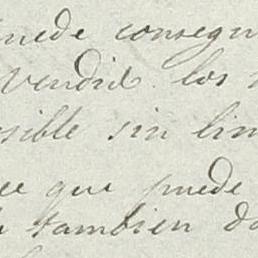 puede consegu
vendid los
sible sin lim
ce que puede
tambien da